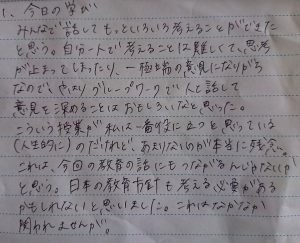 1、今日の学び
みんなで話してもっといろいろ考えることができた
と思う。自分一人で考えることは難しくて、思考
が止まってしまったり、一極端の意見になりがち
なので、やはりグループワークで人と話して
意見を深めることはおもしろいなと思った。
こういう授業が私は一番役に立つと思っている
(人生的に)のだけれど、あまりないのが本当に残念。
これは、今回の教育の話にもつながるんじゃないか
と思う。日本の教育方針も考える必要がある
かもしれないと思いました。これはなかなか
変われませんが。